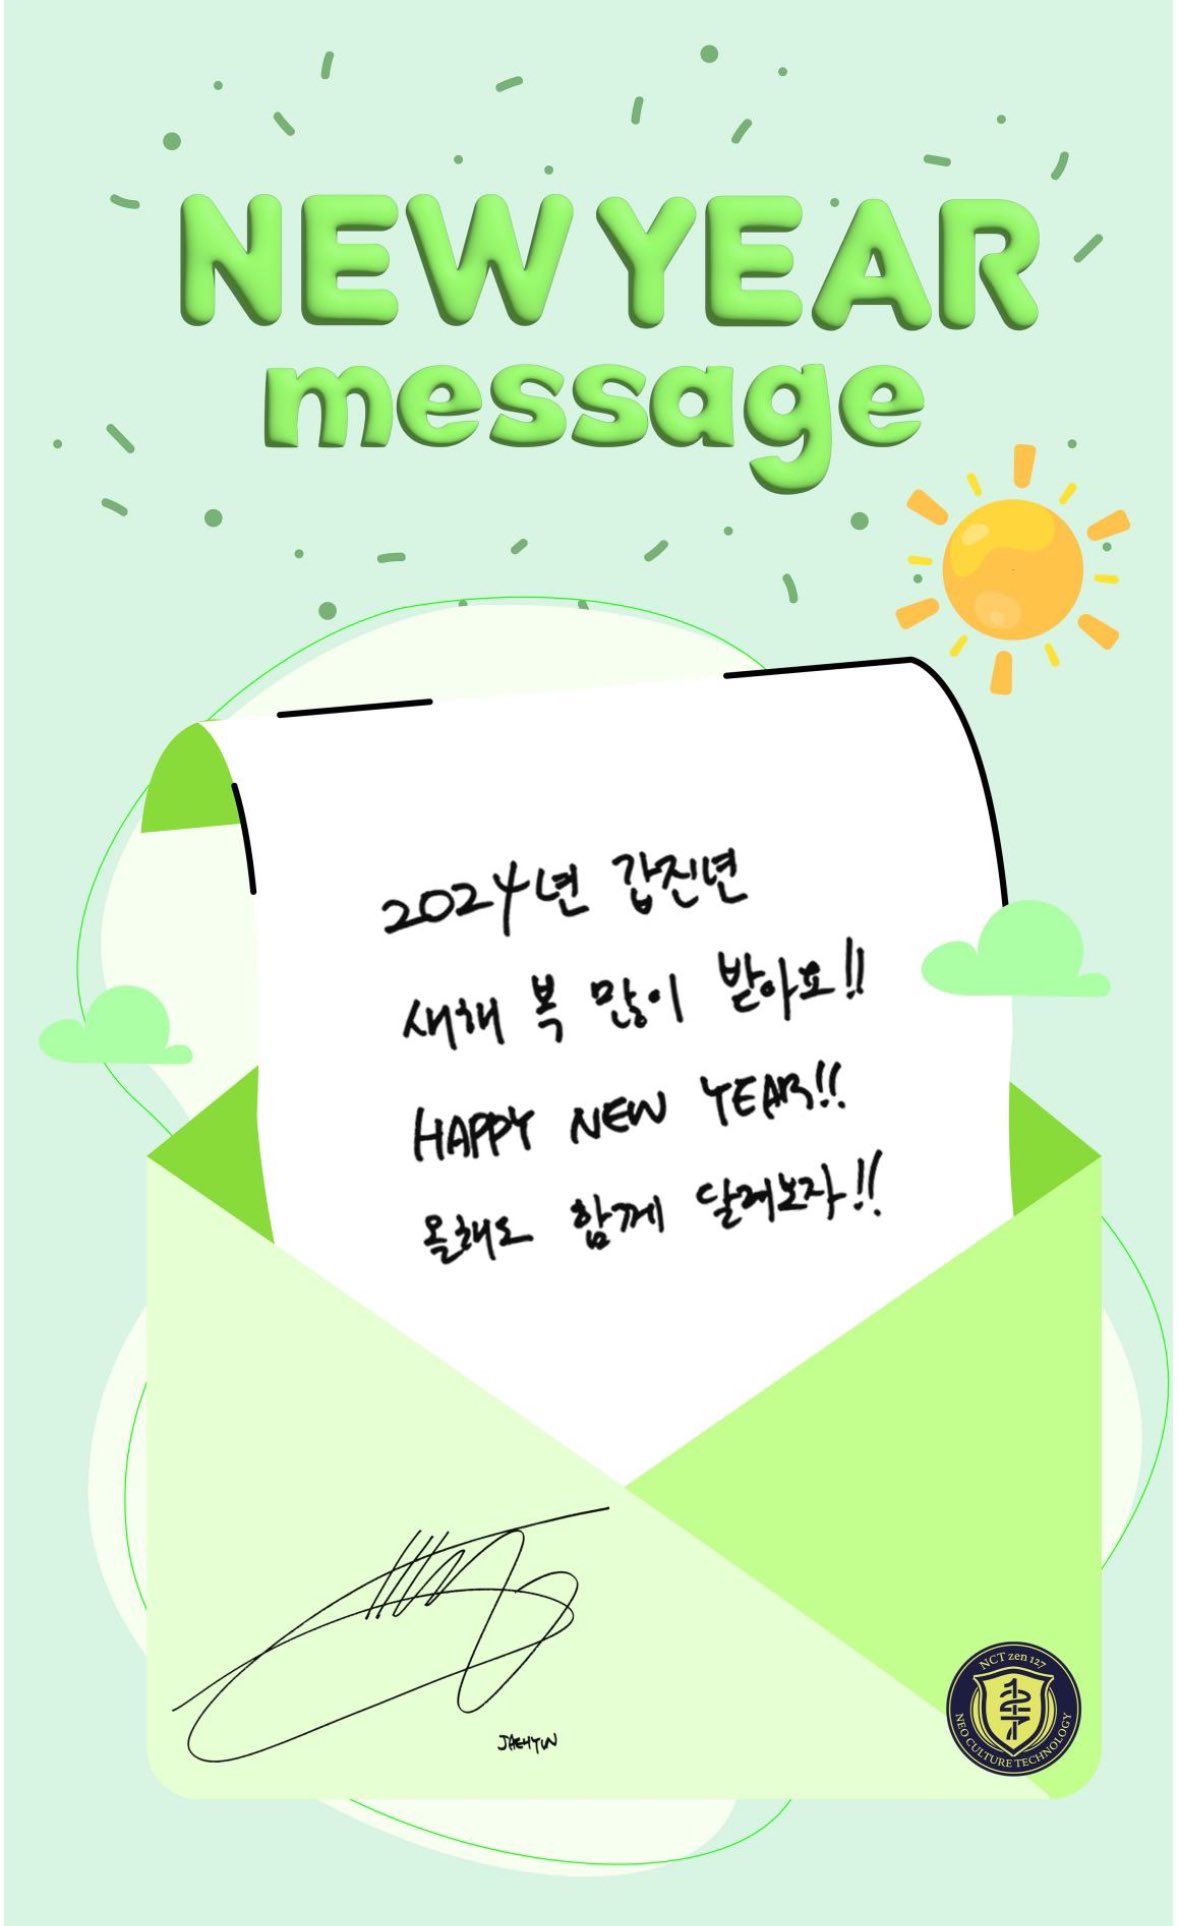 NEW YEAR
message
2024년 갑진년
새해 복 많이 받아요!!
HAPPY NEW YEAR!!
올해도 함께 달려보자!!
JAEHYUN
NCT zen 127
127
NEO CULTURE TECHNOLOGY